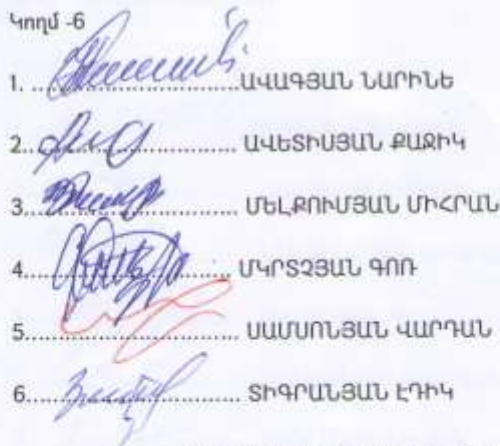 Կողմ -6
1. ........................ԱՎԱԳՅԱՆ ՆԱՐԻՆԵ
2........................... ԱՎԵՏԻՍՅԱՆ ՔԱՋԻԿ
3........................... ՄԵԼՔՈՒՄՅԱՆ ՄԻՀՐԱՆ
4........................... ՄԿՐՏՉՅԱՆ ԳՈՌ
5........................... ՍԱՄՍՈՆՅԱՆ ՎԱՐԴԱՆ
6........................... ՏԻԳՐԱՆՅԱՆ ԷԴԻԿ